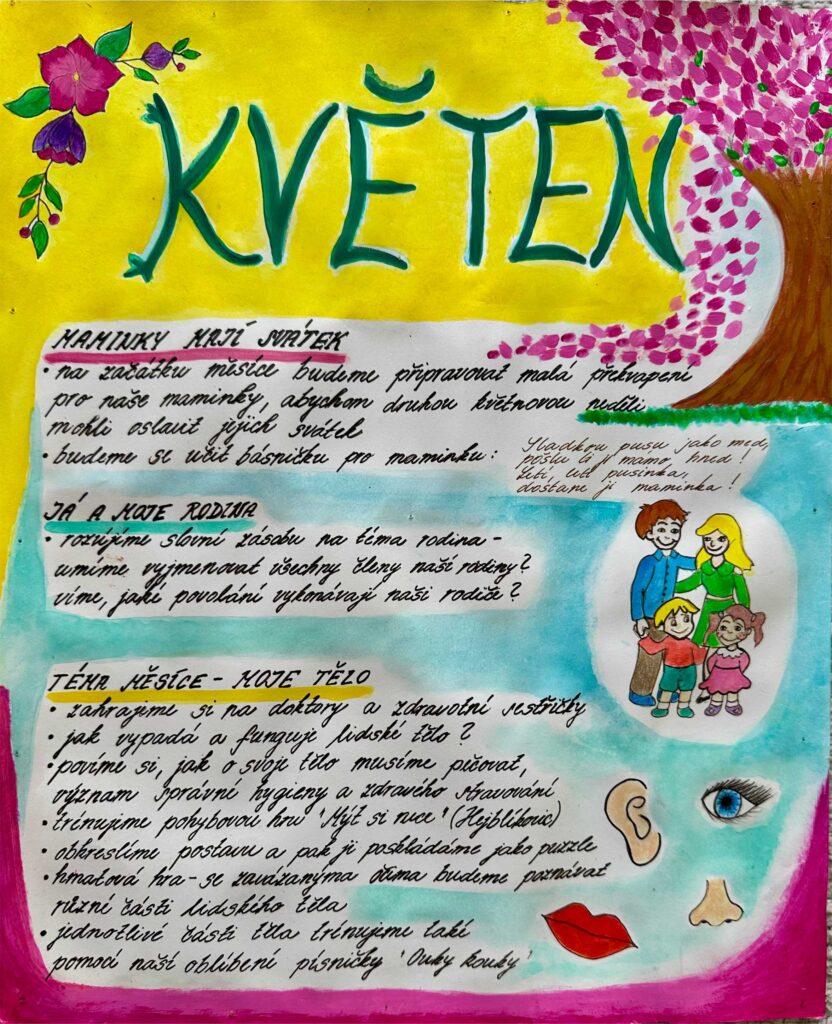 KVĚTEN
MAMINKY MAJÍ SVÁTEK
• na začátku měsíce budeme připravovat malá překvapení
pro naše maminky, abychom druhou květnovou neděli
mohli oslavit jejich svátek
• budeme se učit básničku pro maminku:
Sladkou pusu jako med,
pošlu ti mámo, hned!
Letí, letí pusinka,
dostane ji maminka!
JÁ A MOJE RODINA
• rozvíjíme slovní zásobu na téma rodina -
umíme vyjmenovat všechny členy naší rodiny?
víme, jaké povolání vykonávají naši rodiče?
TÉMA MĚSÍCE - MOJE TĚLO
• zahrajeme si na doktory a zdravotní sestřičky
• jak vypadá a funguje lidské tělo?
• povíme si, jak o svoje tělo musíme pečovat,
význam správní hygieny a zdravého stravování
• trénujeme pohybovou hru 'Mýt si ruce' (Hejblíkovic)
• obkreslíme postavu a pak ji poskládáme jako puzzle
• hmatová hra - se zavázanýma očima budeme poznávat
různé části lidského těla
• jednotlivé části těla trénujeme také
pomocí naší oblíbené písničky 'Ouky kouky'